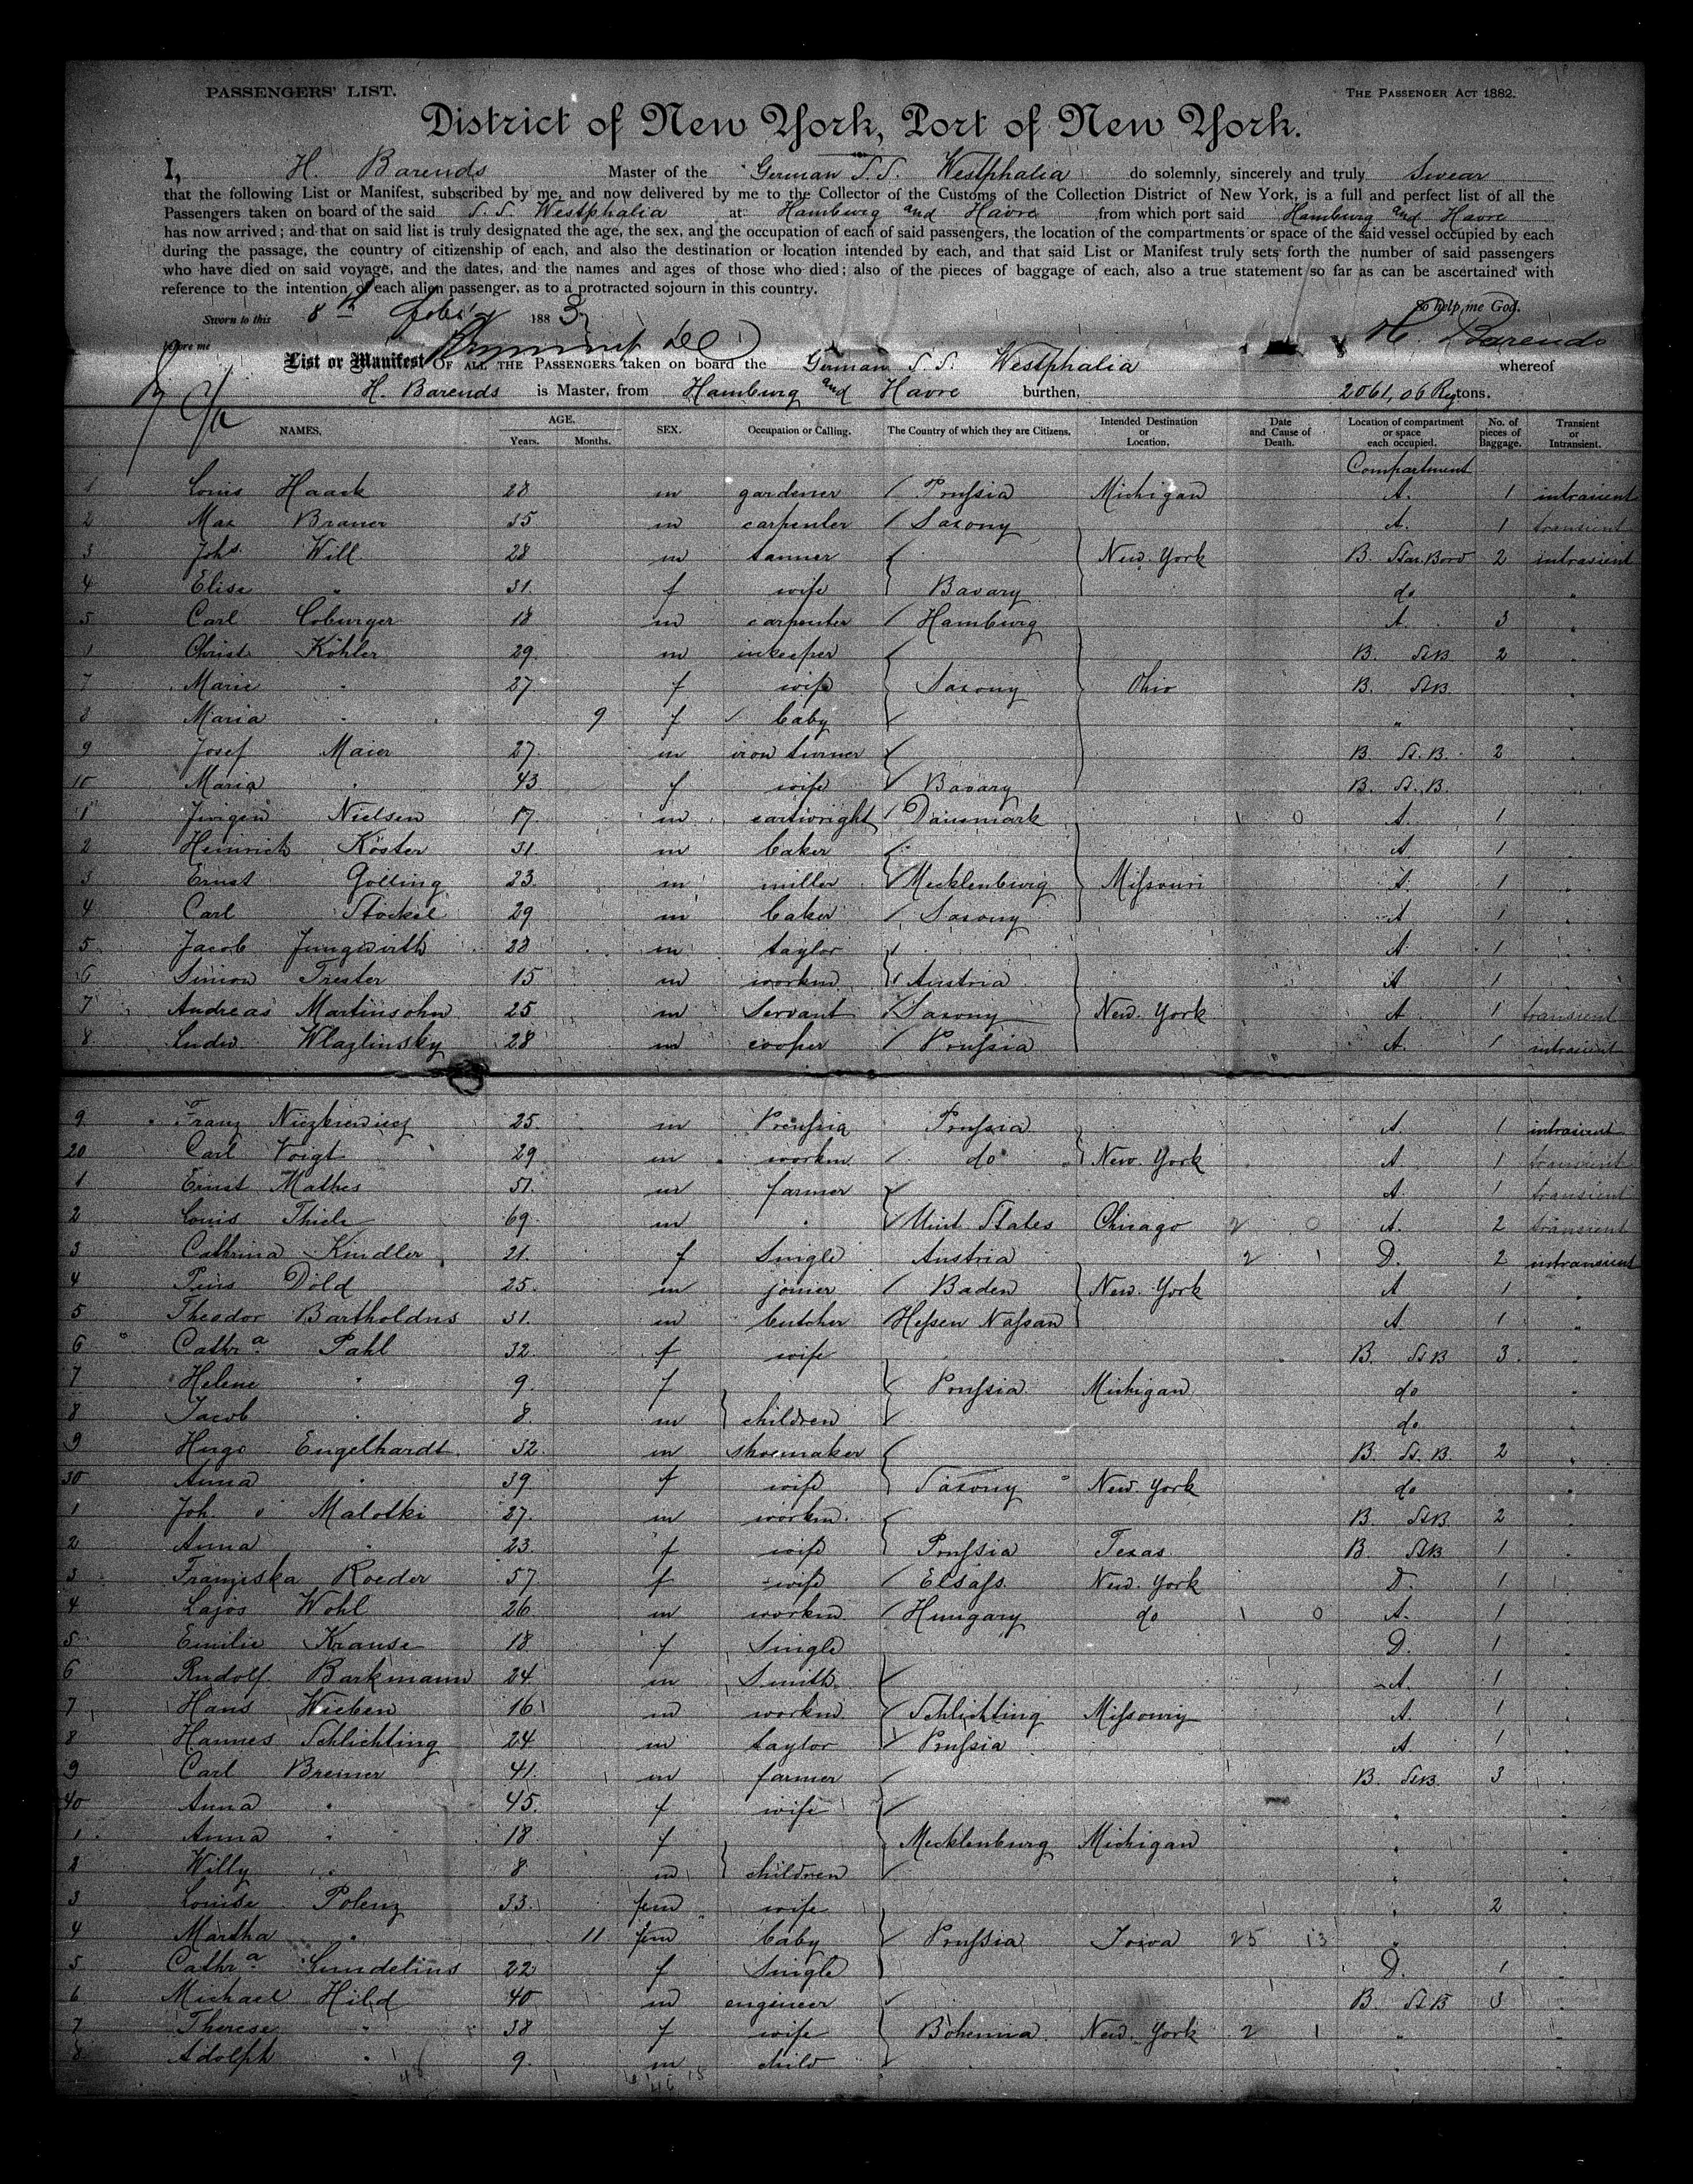 PASSENGERS' LIST. THE PASSENGER ACT 1882.
District of New York, Port of New York.
I, H. Barends Master of the German S.S. Westphalia do solemnly, sincerely and truly Swear
that the following List or Manifest, subscribed by me, and now delivered by me to the Collector of the Customs of the Collection District of New York, is a full and perfect list of all the
Passengers taken on board of the said S.S. Westphalia at Hamburg and Havre from which port said Hamburg and Havre
has now arrived; and that on said list is truly designated the age, the sex, and the occupation of each of said passengers, the location of the compartments or space of the said vessel occupied by each
during the passage, the country of citizenship of each, and also the destination or location intended by each, and that said List or Manifest truly sets forth the number of said passengers
who have died on said voyage, and the dates, and the names and ages of those who died; also of the pieces of baggage of each, also a true statement so far as can be ascertained with
reference to the intention of each alien passenger, as to a protracted sojourn in this country.
So help me God.
Sworn to this 8th 1883
before me H. Barends
List or Manifest OF ALL THE PASSENGERS taken on board the German S.S. Westphalia whereof
H. Barends is Master, from Hamburg and Havre burthen, 2061,06 Reg tons.
NAMES. AGE. Years. Months. SEX. Occupation or Calling. The Country of which they are Citizens. Intended Destination or Location. Date and Cause of Death. Location of compartment or space each occupied. No. of pieces of Baggage. Transient or Intransient.
Compartment
1 Louis Haack 28 m gardener Prussia Michigan A. 1 intransient
2 Max Brauer 35 m carpenter Saxony A. 1 transient
3 Johs Will 28 m tanner New York B. Star.Bord 2 intrasient
4 Elise " 31 f wife Bavary do "
5 Carl Coburger 18 m carpenter Hamburg A. 3 "
Christ. Köhler 29 m inkeeper B. StB 2 "
7 Marie " 27 f wife Saxony Ohio B. StB "
8 Maria " 9 f baby " "
9 Josef Maier 27 m iron turner B. St.B. 2 "
10 Maria " 43 f wife Bavary B. St.B. "
1 Jürgen Nielsen 17 m cartwright Danmark 1 0 A. 1
2 Heinrich Köster 31 m baker A. 1
3 Ernst Golling 23 m miller Mecklenburg Missouri A. 1 "
4 Carl Stöckel 29 m baker Saxony A 1 "
5 Jacob Jungwirth 28 m taylor A. 1 "
6 Simon Trester 15 m workm Austria A 1 "
7 Andreas Martinsohn 25 m Servant Saxony New York A 1 transient
8 Ludw. Wlazlinsky 28 m cooper Prussia A. 1 intransient
9 Franz 25 m Preussia Prussia A. 1 intransient
20 Carl Voigt 29 m workm do New York A 1 transient
1 Ernst Mathes 51 m farmer A. 1 transient
2 Louis Thiele 69 m " Unit States Chicago 2 0 A. 2 transient
3 Cathrina Kindler 21 f Single Austria 2 1 D. 2 intransient
4 Pius Dold 25 m joiner Baden New York A 1 "
5 Theodor Bartholdus 31 m butcher Hessen Nassau A. 1 "
6 Cathra Pahl 32 f wife B. StB 3 "
7 Helene " 9 f Prussia Michigan do "
8 Jacob " 8 m children do "
9 Hugo Engelhardt 32 m shoemaker B. St.B. 2 "
30 Anna " 39 f wife Saxony New York do "
1 Joh. v Malotki 27 m workm. B. StB. 2
2 Anna " 23 f wife Prussia Texas B StB 1 "
3 Franziska Roeder 57 f wife Elsass New York D. 1 "
4 Lajos Wohl 26 m workm Hungary do 1 0 A. 1 "
5 Emilie Krause 18 f Single D. 1 "
6 Rudolf Barkmann 24 m Smith A. 1 "
7 Hans Wieben 16 m workm Schlichting Missoury A. 1 "
8 Hannes Schlichting 24 m taylor Prussia A. 1 "
9 Carl Bremer 41 m farmer B. StB. 3 "
40 Anna " 45 f wife " "
1 Anna " 18 f Mecklenburg Michigan " "
2 Willy " 8 m children " "
3 Louise Polenz 33 fem wife " 2 "
4 Martha " 11 fem baby Prussia Iowa 25 13 " "
5 Cathra Gundelius 22 f Single D. 1 "
6 Michael Hild 40 m engineer B StB 3 "
7 Therese " 38 f wife Bohemia New York 2 1 " "
8 Adolph " 9 m child "